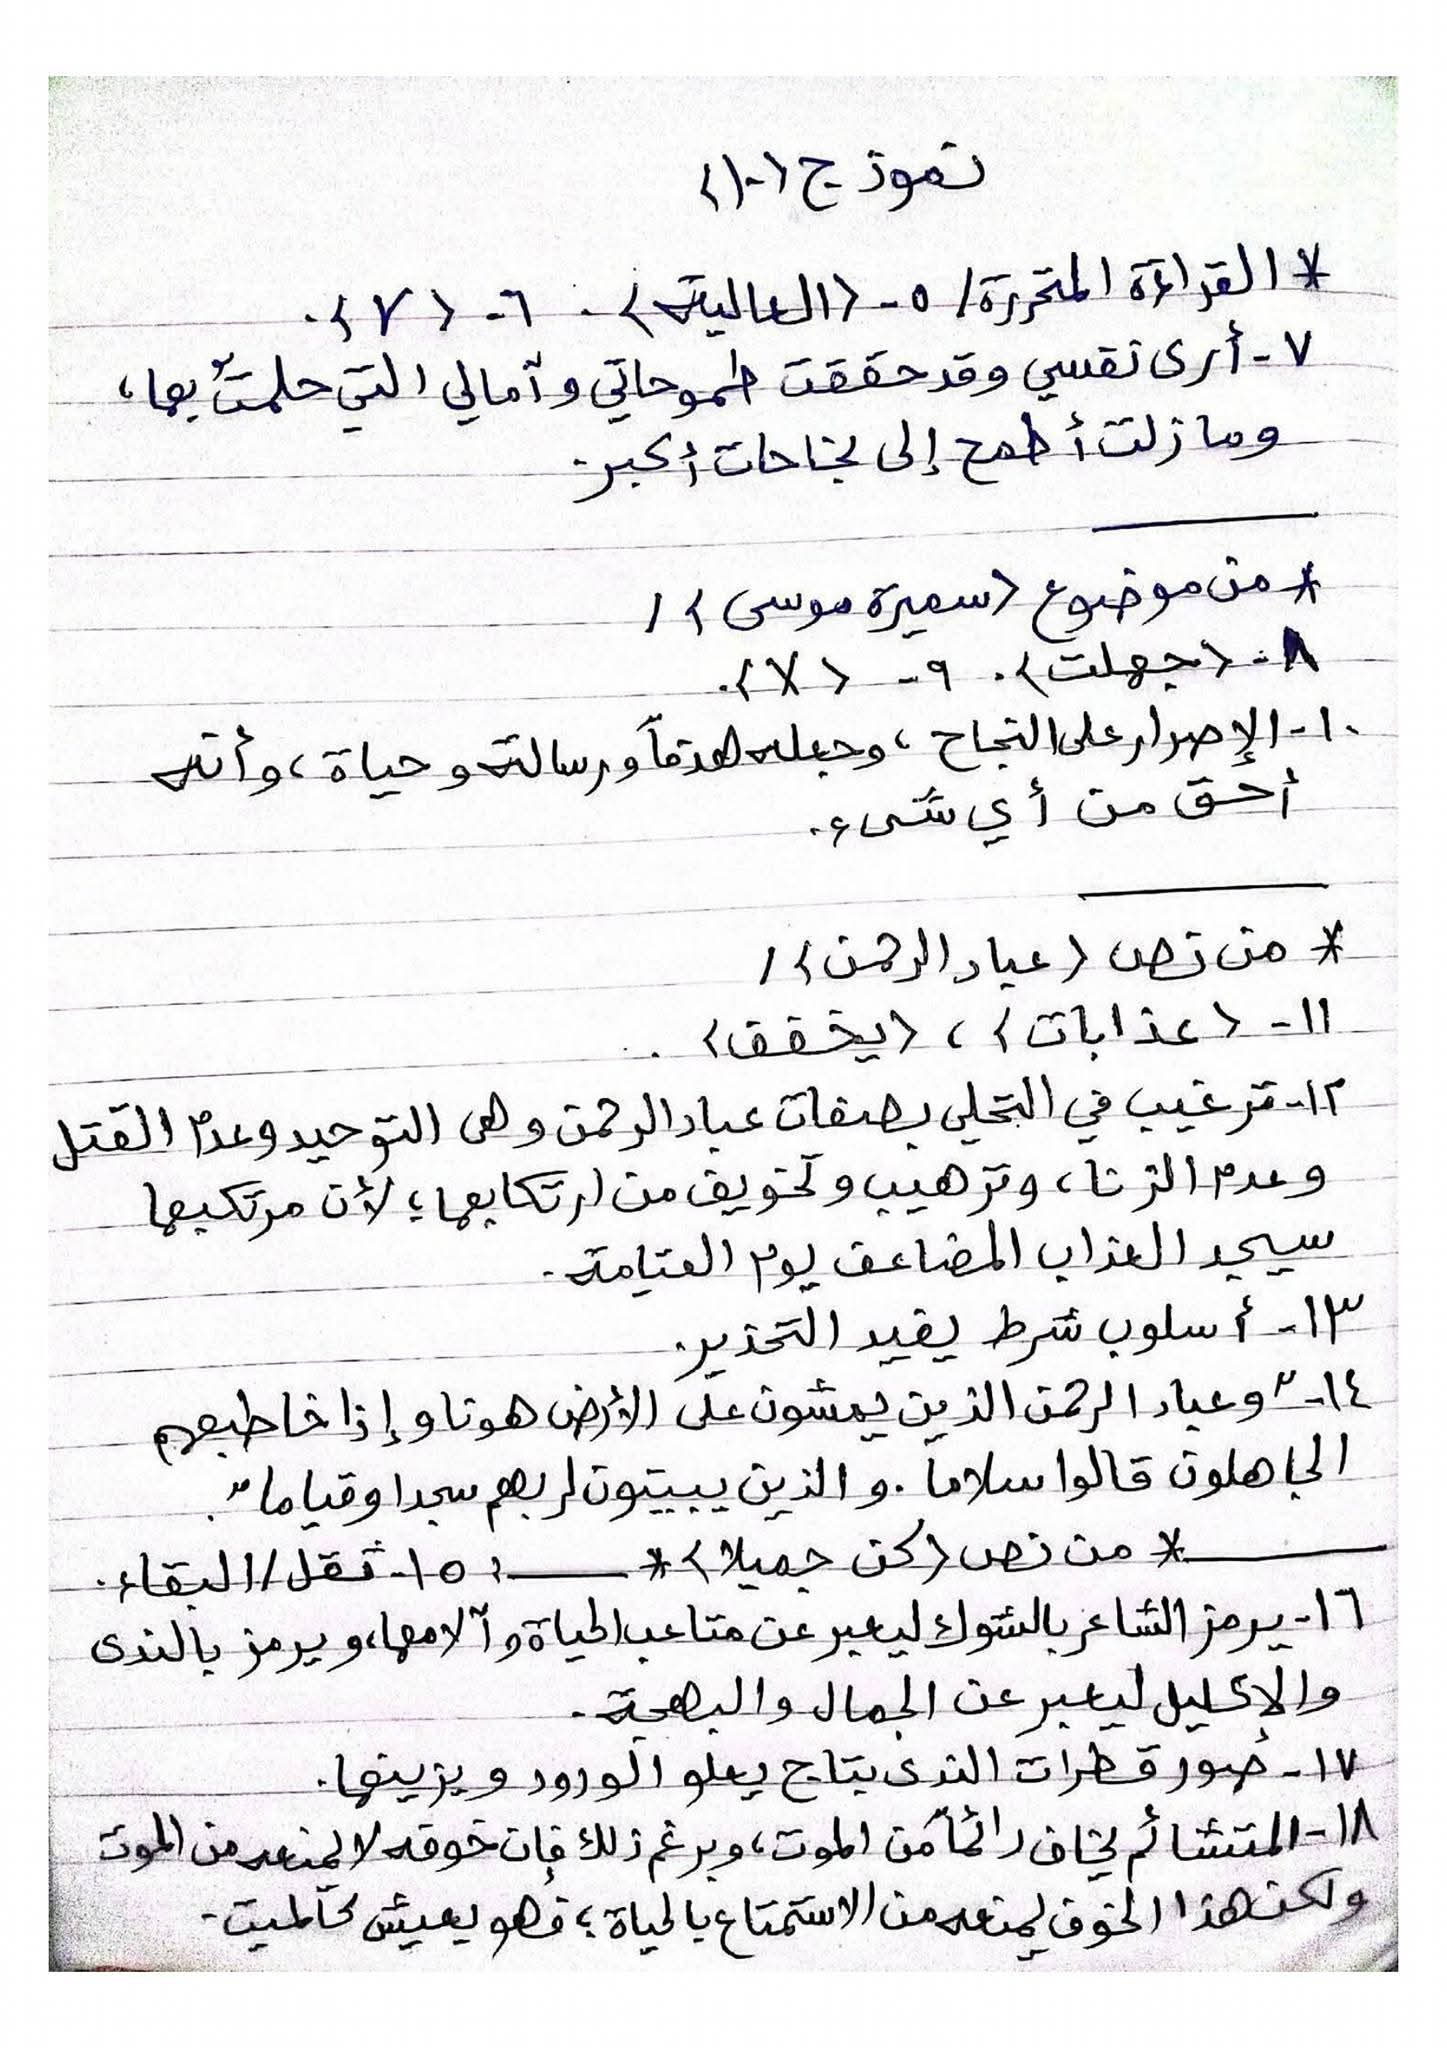 نموذج (١٠)
* القراءة المتحررة / ٥- (العالية). ٦- (٧).
٧- أرى نفسي وقد حققت طموحاتي وآمالي التي حلمتُ بها،
وما زلت أطمح إلى نجاحات أكبر.
* من موضوع (سميرة موسى) /
٨- (جهلت). ٩- (X).
١٠- الإصرار على النجاح، وجعله هدفاً ورسالة وحياة، وأنه
أحق من أي شىء.
* من نص (عباد الرحمن) /
١١- (عذابات)، (يخفف).
١٢- ترغيب في التحلي بصفات عباد الرحمن وهى التوحيد وعدم القتل
وعدم الزنا، وترهيب وتخويف من ارتكابها؛ لأن مرتكبها
سيجد العذاب المضاعف يوم القيامة.
١٣- أسلوب شرط يفيد التحذير.
١٤- "وعباد الرحمن الذين يمشون على الأرض هونا وإذا خاطبهم
الجاهلون قالوا سلاما. والذين يبيتون لربهم سجدا وقياما".
* من نص (كن جميلا) * : ١٥- ثقل / البقاء.
١٦- يرمز الشاعر بالشوك ليعبر عن متاعب الحياة وآلامها، ويرمز بالندى
والإكليل ليعبر عن الجمال والبهجة.
١٧- صور قطرات الندى بتاج يعلو الورود ويزينها.
١٨- المتشائم يخاف دائماً من الموت، وبرغم ذلك فإن خوفه لا يمنعه من الموت
ولكن هذا الخوف يمنعه من الاستمتاع بالحياة؛ فهو يعيش كالميت.